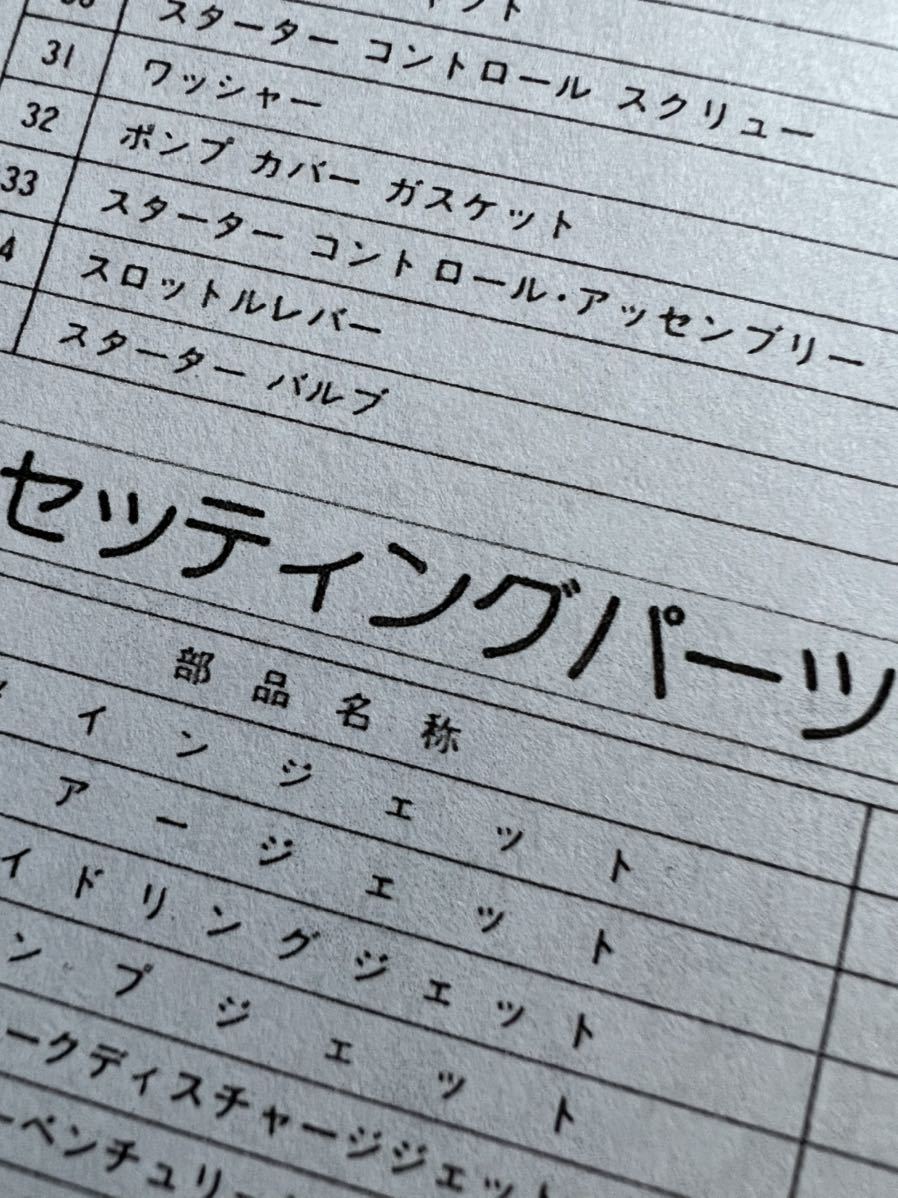 スターター コントロール スクリュー
31 ワッシャー
32 ポンプ カバー ガスケット
33 スターター コントロール・アッセンブリー
4 スロットルレバー
スターター バルブ
セッティングパーツ
部品名称
インジェット
アージェット
イドリングジェット
ンプジェット
ークディスチャージジェット
ーベンチュリー